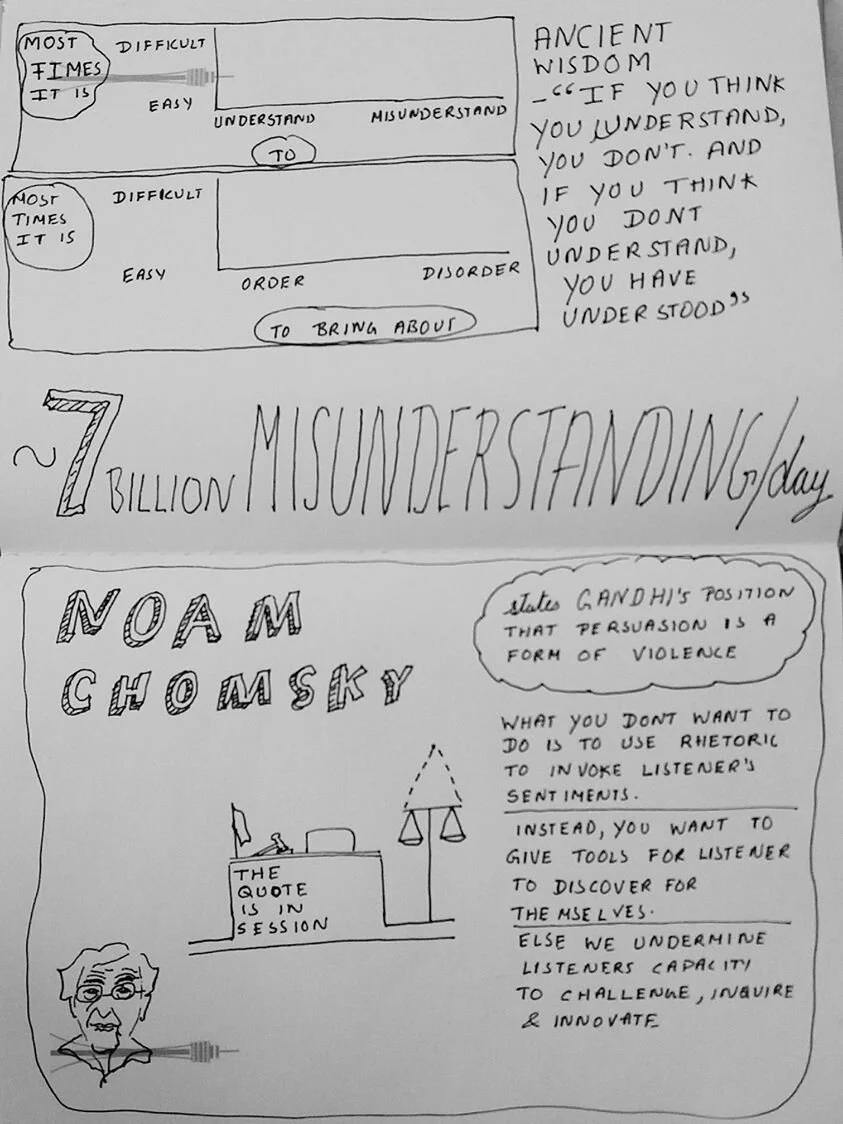 MOST
TIMES
IT IS
DIFFICULT
EASY
UNDERSTAND MISUNDERSTAND
TO
MOST
TIMES
IT IS
DIFFICULT
EASY
ORDER DISORDER
TO BRING ABOUT
ANCIENT
WISDOM
-“IF YOU THINK
YOU UNDERSTAND,
YOU DON'T. AND
IF YOU THINK
YOU DONT
UNDERSTAND,
YOU HAVE
UNDERSTOOD”
~7 BILLION MISUNDERSTANDING/day
NOAM
CHOMSKY
states GANDHI'S POSITION
THAT PERSUASION IS A
FORM OF VIOLENCE
WHAT YOU DONT WANT TO
DO IS TO USE RHETORIC
TO INVOKE LISTENER'S
SENTIMENTS.
INSTEAD, YOU WANT TO
GIVE TOOLS FOR LISTENER
TO DISCOVER FOR
THEMSELVES.
ELSE WE UNDERMINE
LISTENERS CAPACITY
TO CHALLENGE, INQUIRE
& INNOVATE
THE
QUOTE
IS IN
SESSION